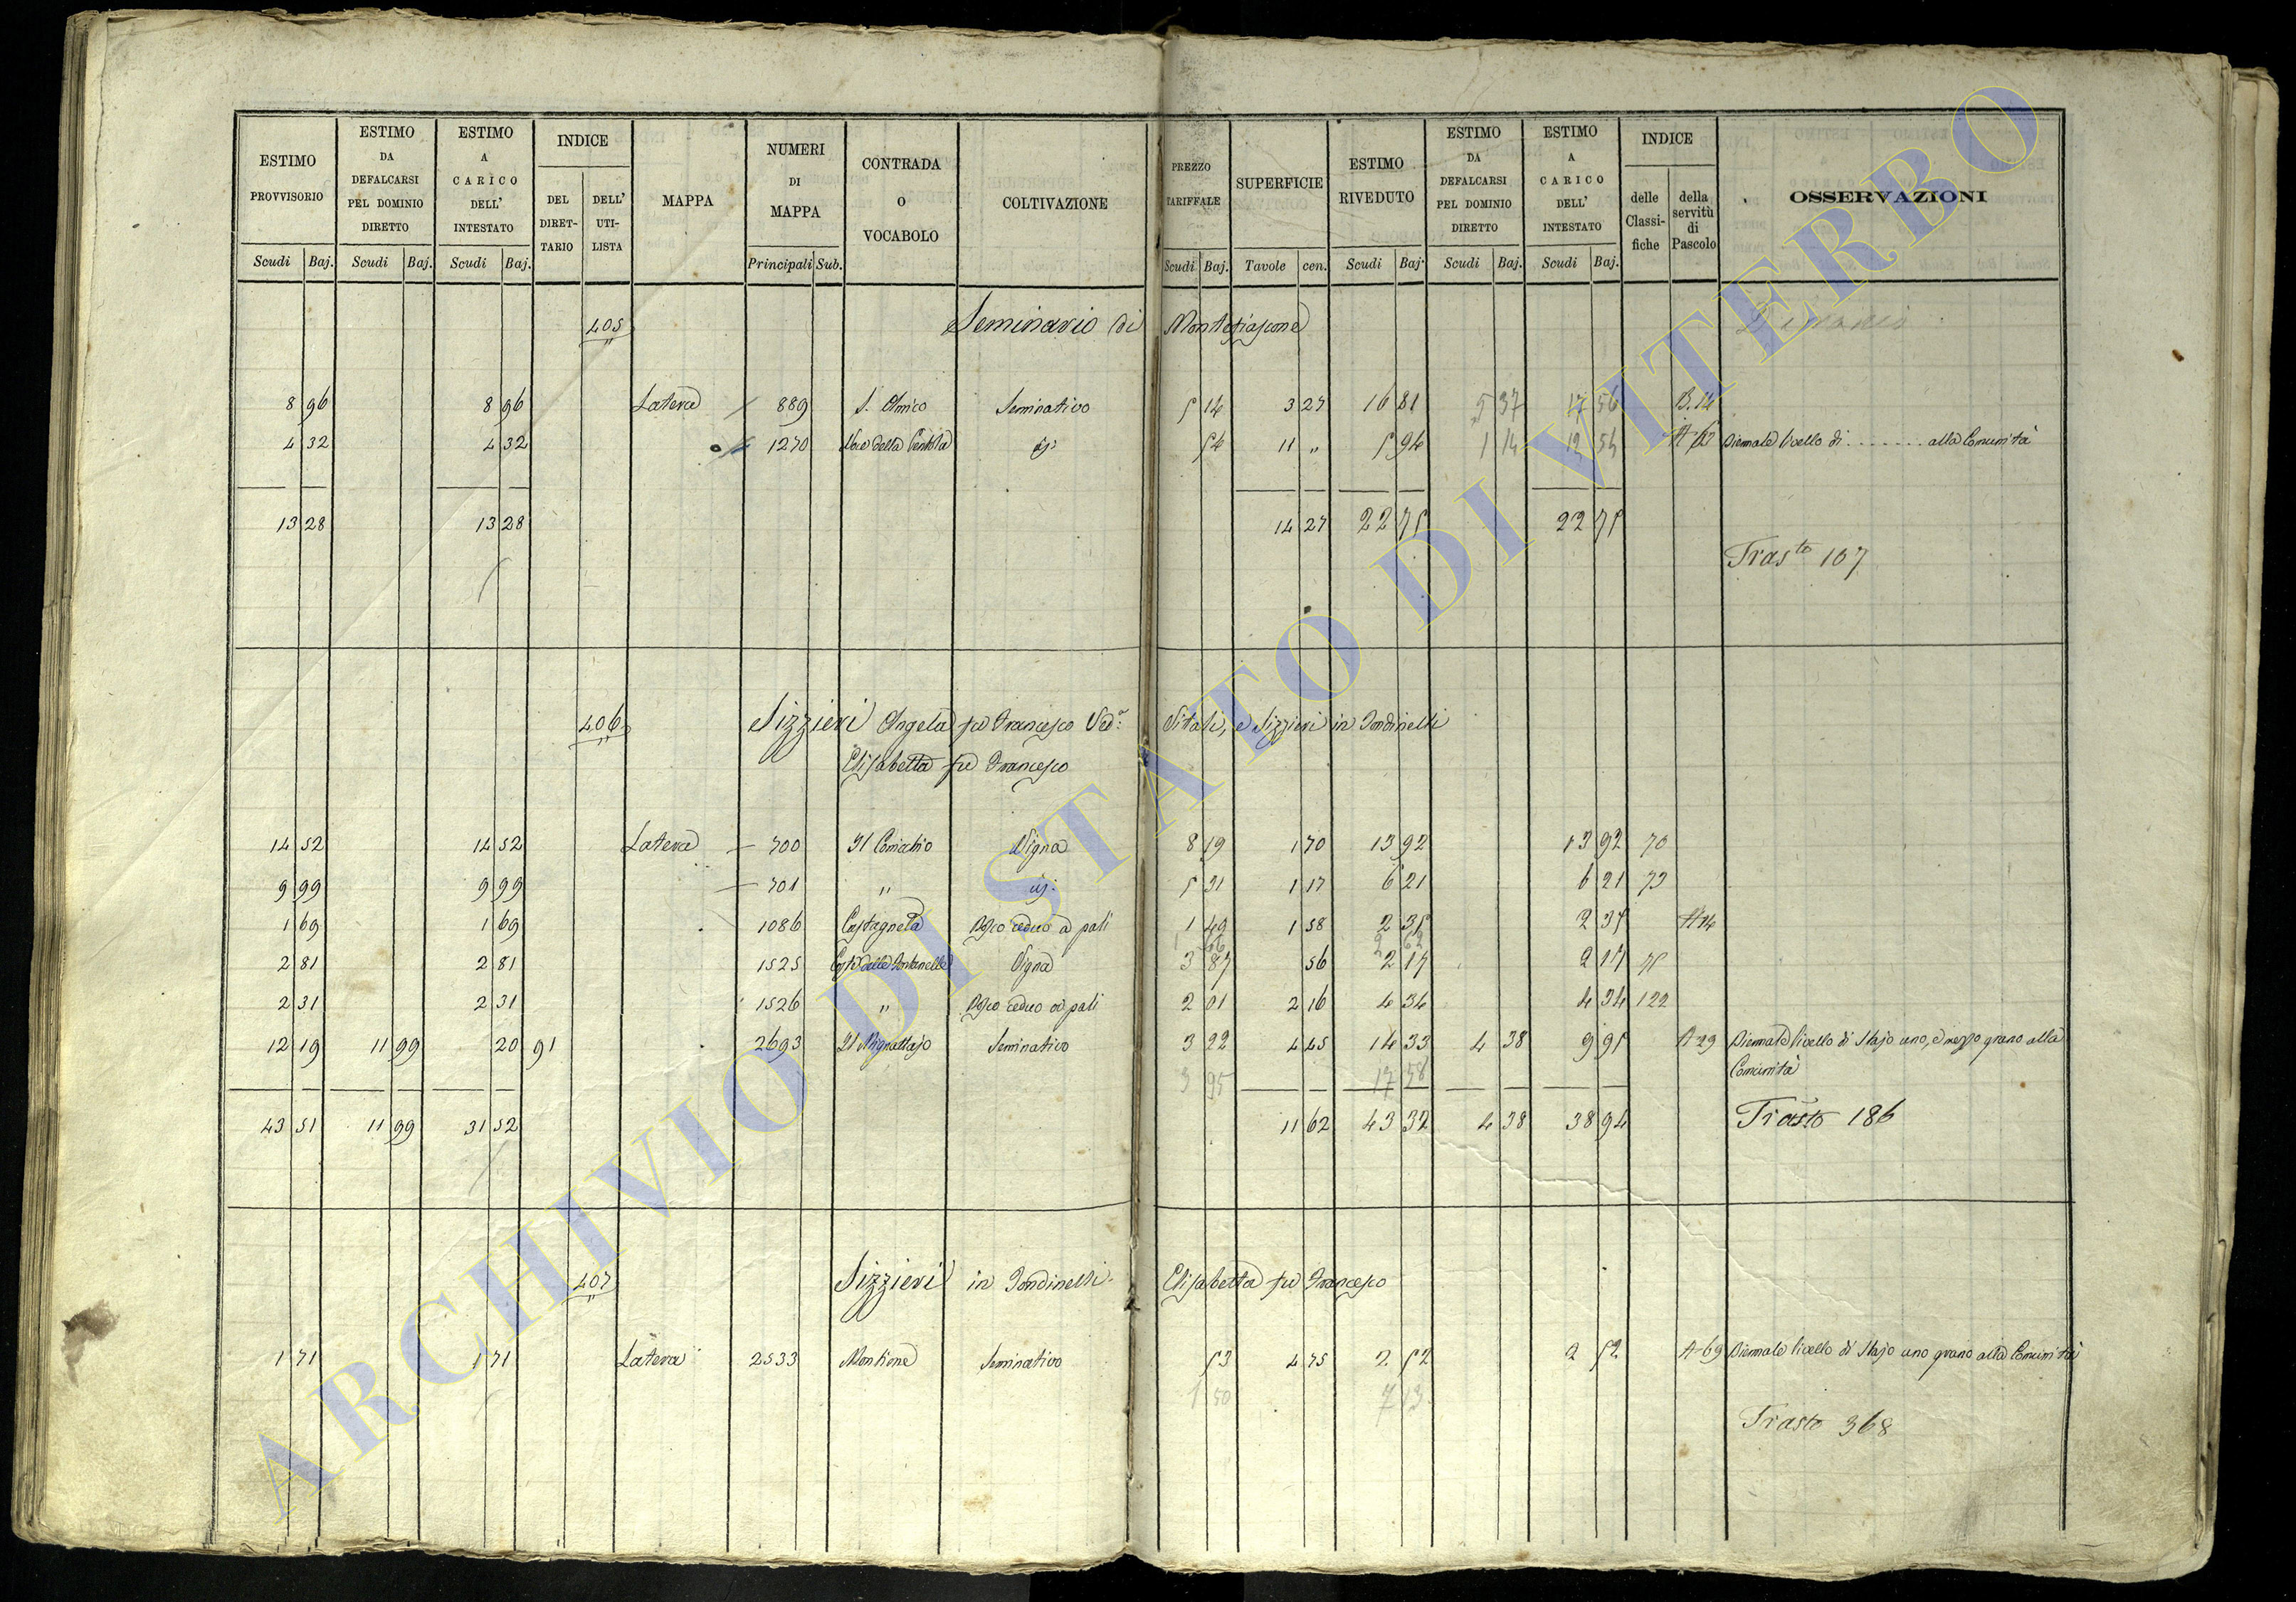 ESTIMO PROVVISORIO | ESTIMO DA DEFALCARSI PEL DOMINIO DIRETTO | ESTIMO A CARICO DELL' INTESTATO | INDICE DEL DIRETTARIO | DELL' UTILISTA | MAPPA | NUMERI DI MAPPA | CONTRADA O VOCABOLO | COLTIVAZIONE | PREZZO TARIFFALE | SUPERFICIE | ESTIMO RIVEDUTO | ESTIMO DA DEFALCARSI PEL DOMINIO DIRETTO | ESTIMO A CARICO DELL' INTESTATO | INDICE delle Classifiche | della servitù di Pascolo | OSSERVAZIONI
Scudi Baj. Scudi Baj. Scudi Baj. Principali Sub. Scudi Baj. Tavole cen. Scudi Baj. Scudi Baj. Scudi Baj.
405 Seminario di Montefiascone
8 96 8 96 Latera 889 S. Amico Seminativo 5 14 3 27 16 81 5 37 17 56 B.14
4 32 4 32 1270 della id: 54 11 " 5 94 1 14 12 54 Biennale livello di ....... alla Comunità
13 28 13 28 14 27 22 75 22 75
Tras.to 107
406 Sizzieri Angela fu Francesco Ved.a Vitali, e Sizzieri in Fondinelli
Elisabetta fu Francesco
14 52 14 52 Latera 700 Il Vigna 8 19 1 70 13 92 13 92 70
9 99 9 99 701 " id: 5 31 1 17 6 21 6 21 73
1 69 1 69 1086 Castagneta Bosco ceduo a pali 1 49 1 58 2 35 2 35 A 14
1 66 2 62
2 81 2 81 1525 Coste delle Fontanelle Vigna 3 87 56 2 17 2 17 75
2 31 2 31 1526 " Bosco ceduo a pali 2 01 2 16 4 34 4 34 122
12 19 11 99 20 91 2693 Il Mignattajo Seminativo 3 22 4 45 14 33 4 38 9 95 A 29 Biennale livello di Stajo uno, e mezzo grano alla
3 95 17 58 Comunità
43 51 11 99 31 52 11 62 43 32 4 38 38 94 Trasto 186
407 Sizzieri in Fondinelli Elisabetta fu Francesco
1 71 1 71 Latera 2533 Montione Seminativo 53 4 75 2 52 2 52 A 69 Biennale livello di Stajo uno grano alla Comunità
1 50 7 13
Trasto 368
ARCHIVIO DI STATO DI VITERBO